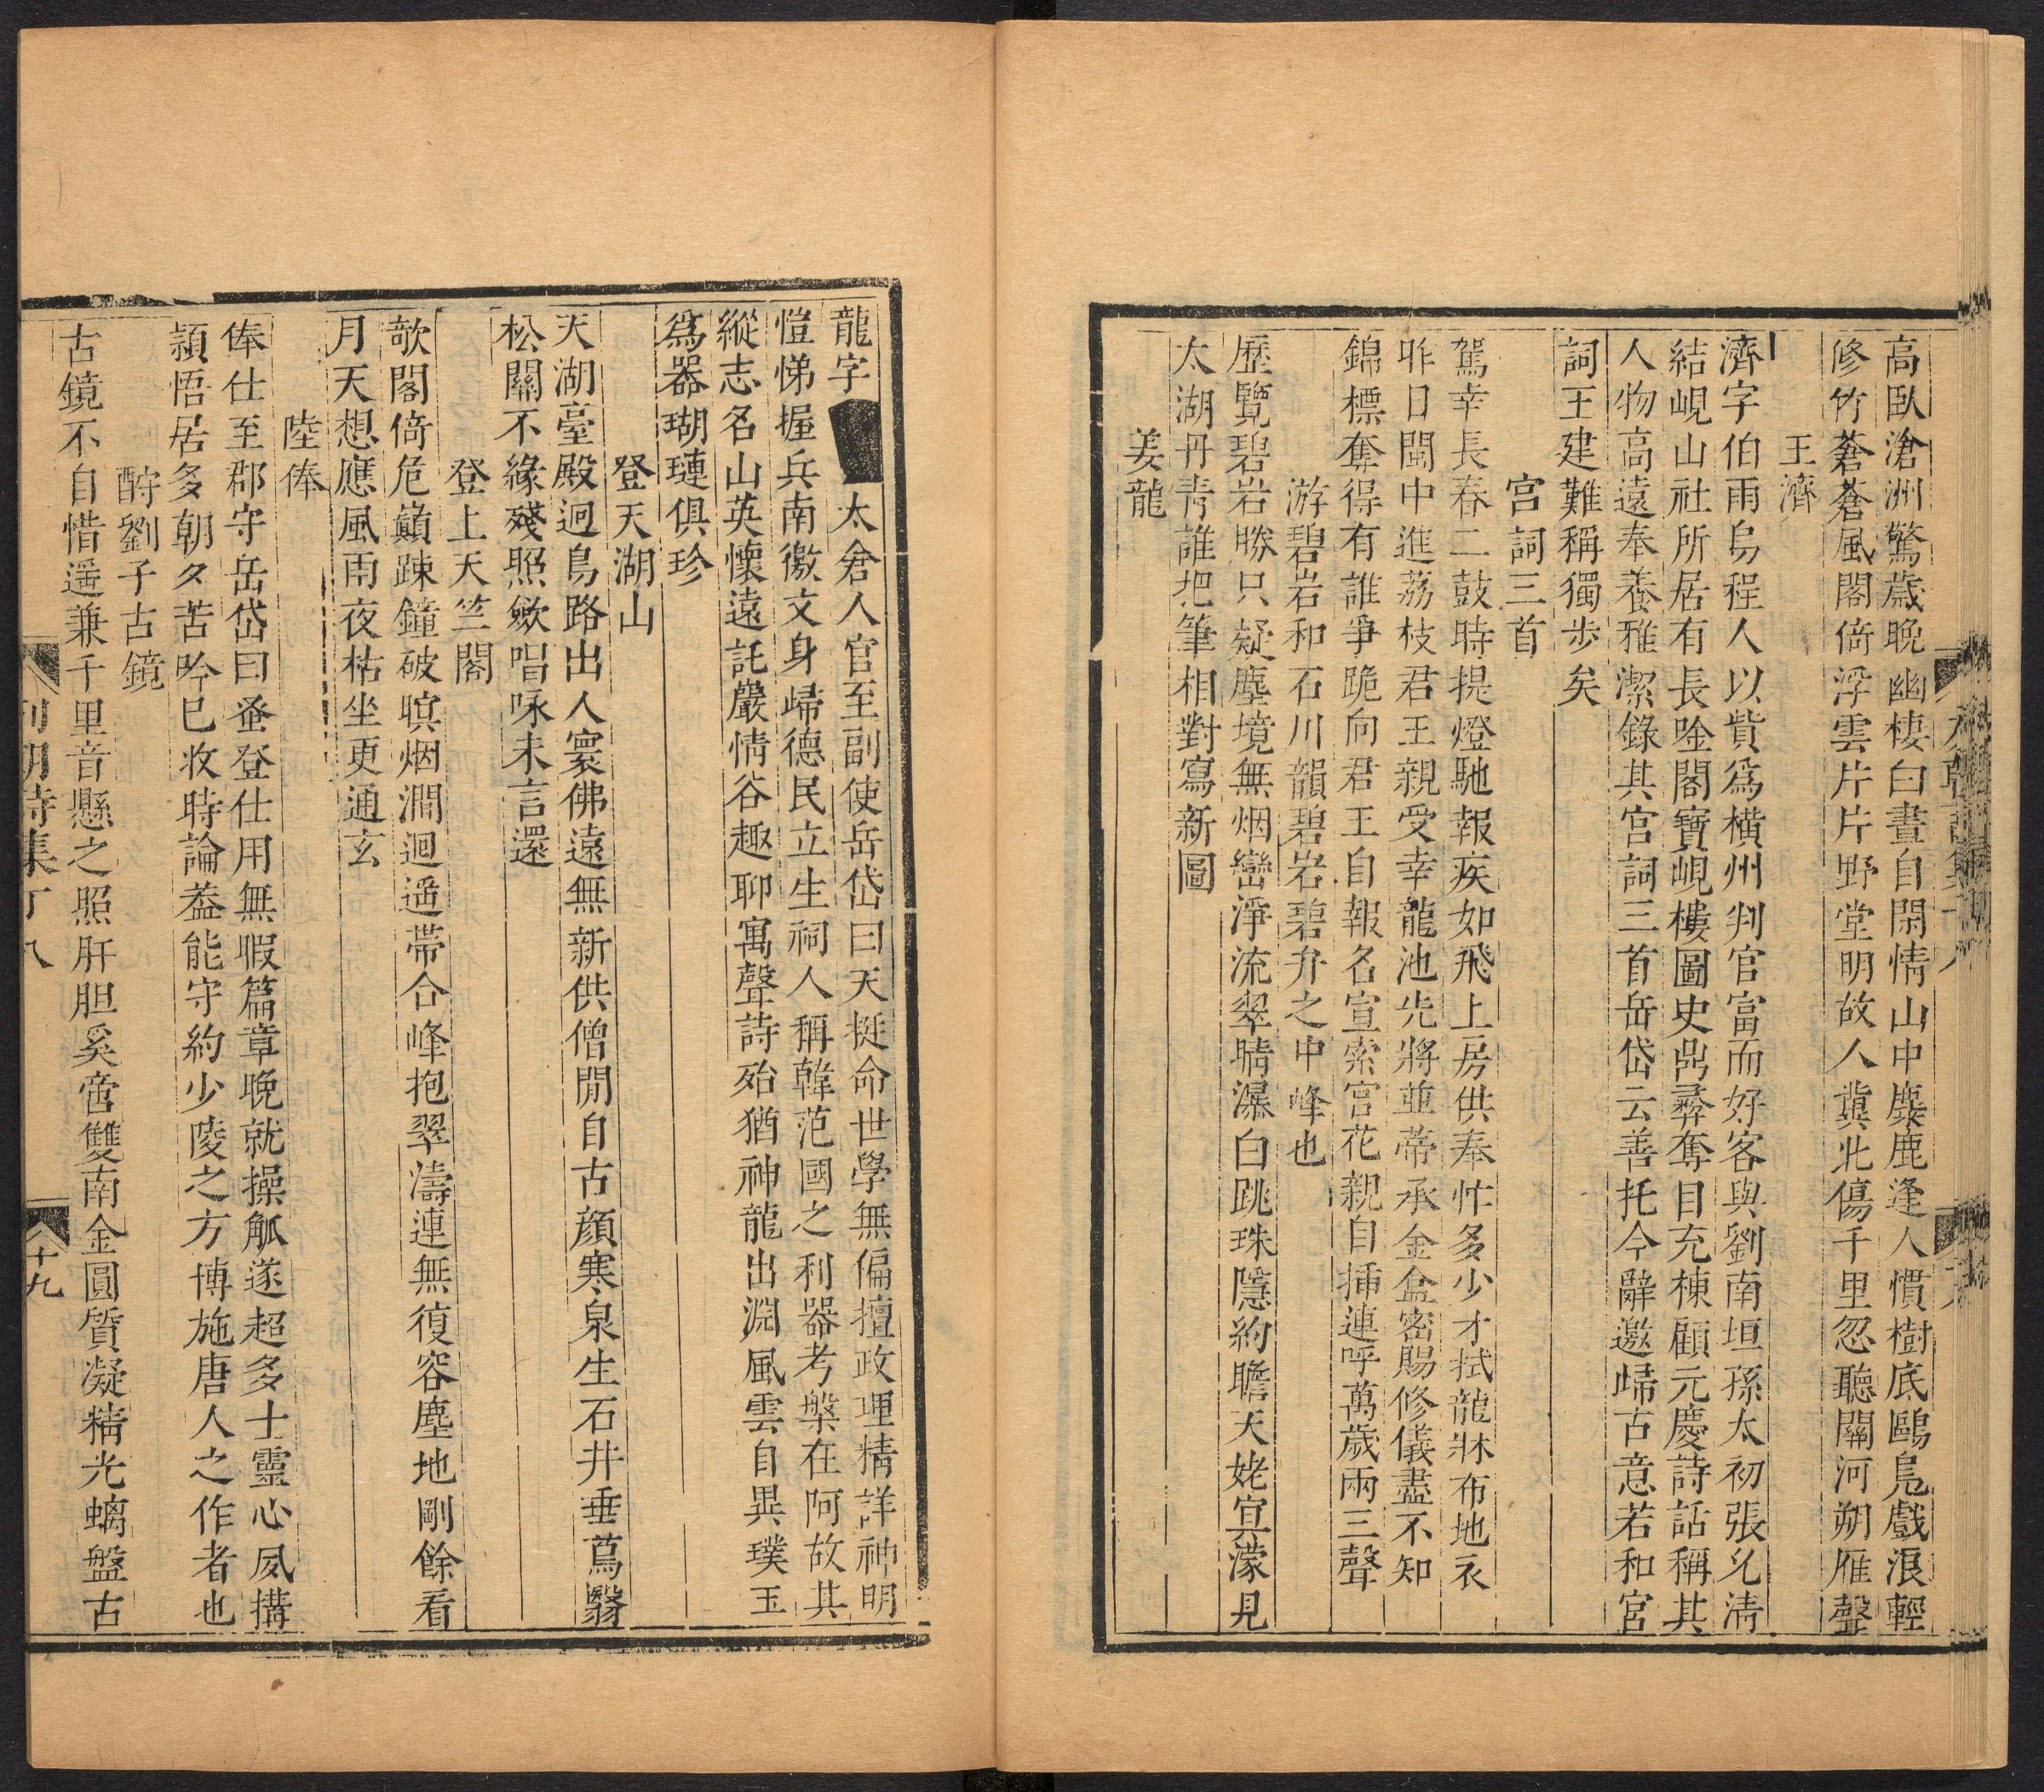 高臥滄洲驚歲晚幽棲白晝自閑情山中麋鹿逢人慣樹底鷗鳧戲浪輕
修竹蒼蒼風閣倚浮雲片片野堂明故人冀北傷千里忽聽關河朔雁聲
王濟
濟字伯雨烏程人以貲爲橫州判官富而好客與劉南垣孫太初張允清
結峴山社所居有長唫閣寶峴樓圖史鼎彞奪目充棟顧元慶詩話稱其
人物高遠奉養雅潔錄其宮詞三首岳岱云善托今辭邀歸古意若和宮
詞王建難稱獨步矣
宮詞三首
駕幸長春二鼓時提燈馳報疾如飛上房供奉忙多少才拭龍牀布地衣
昨日閩中進荔枝君王親受幸龍池先將並蒂承金盒密賜修儀盡不知
錦標奪得有誰爭跪向君王自報名宣索宮花親自揷連呼萬歲兩三聲
游碧岩和石川韻碧岩碧弁之中峰也
歷覽碧岩勝只疑塵境無烟巒淨流翠晴瀑白跳珠隱約瞻天姥㝠濛見
太湖丹靑誰把筆相對寫新圖
姜龍
龍字太倉人官至副使岳岱曰天挺命世學無偏擅政理精詳神明
愷悌握兵南徼文身歸德民立生祠人稱韓范國之利器考槃在阿故其
縱志名山英懷遠託嚴情谷趣聊寓聲詩殆猶神龍出淵風雲自異璞玉
爲器瑚璉俱珍
登天湖山
天湖臺殿迥鳥路出人寰佛遠無新供僧閒自古顔寒泉生石井垂蔦翳
松關不緣殘照斂唱咏未言還
登上天竺閣
欹閣倚危巔踈鐘破暝烟澗迴遥帶合峰抱翠濤連無復容塵地剛餘看
月天想應風雨夜枯坐更通玄
陸俸
俸仕至郡守岳岱曰蚤登仕用無暇篇章晩就操觚遂超多士靈心夙搆
頴悟居多朝夕苦吟已收時論葢能守約少陵之方博施唐人之作者也
酧劉子古鏡
古鏡不自惜遥兼千里音懸之照肝胆奚啻雙南金圓質凝精光螭盤古
列朝詩集丁八
十九